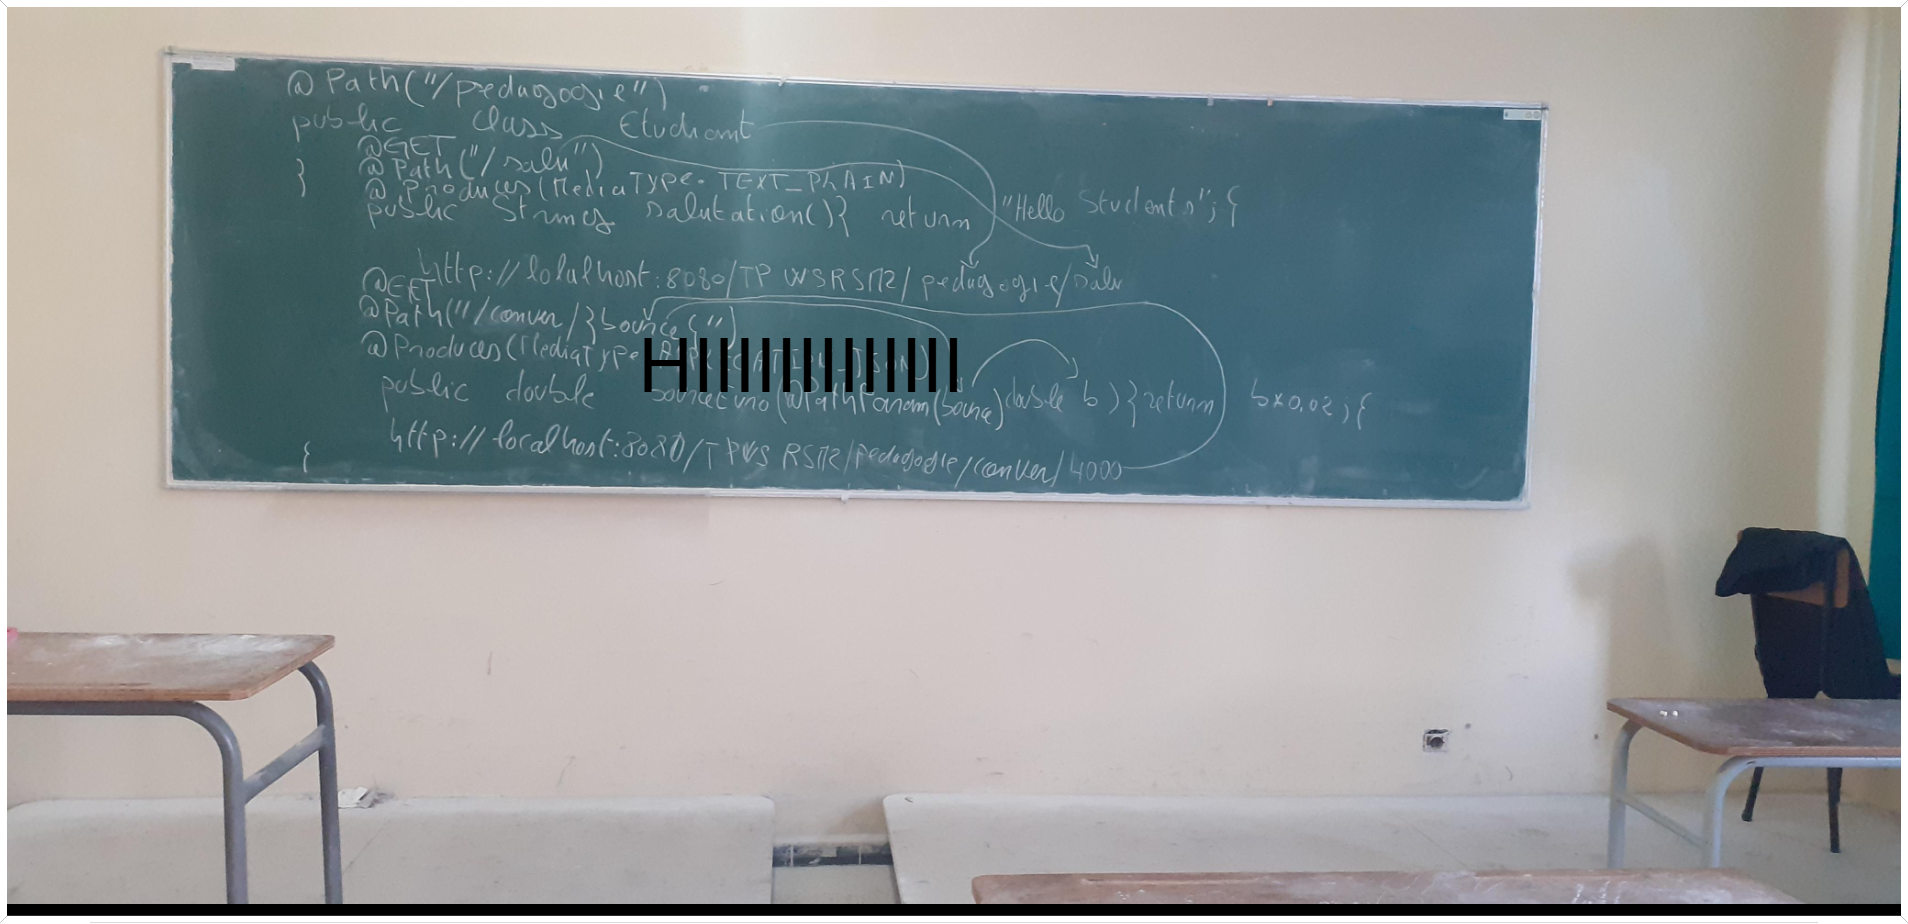 @Path("/pedagogie")
public class Etudiant
@GET
@Path("/salu")
} @Produces(MediaType.TEXT_PLAIN)
public String salutation(){ return "Hello Students";{
http://localhost:8080/TP WSRSM2/pedagogie/salu
@GET
@Path("/conver/}bource{")
@Produces(MediaType.APPLICATION_JSON)
HIIIIIIIIIIIII
public double bourceEuro(@PathParam(bource)double b)}return b*0.02;{
http://localhost:8080/TPWS RSM2/pedagogie/conver/4000
{